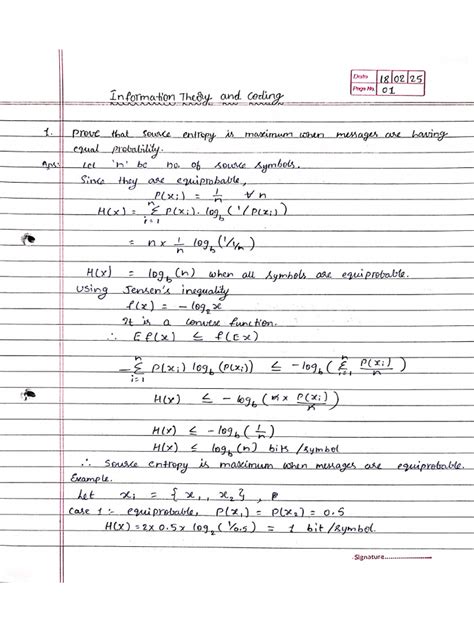 Date 18 02 25
Page No. 01
Information Theory and Coding
1. Prove that source entropy is maximum when messages are having
equal probability.
Ans: Let 'n' be no. of source symbols.
Since they are equiprobable,
P(xi) = 1/n ∀ n
H(x) = n Σ i=1 P(xi). log_b (1/P(xi))
= n x 1/n log_b (1/1/n)
H(x) = log_b (n) when all symbols are equiprobable.
Using Jensen's inequality
f(x) = - log_2 x
It is a convex function.
∴ E f(x) ≤ f(E x)
- n Σ i=1 P(xi) log_b (P(xi)) ≤ - log_b ( n Σ i=1 P(xi)/n )
H(x) ≤ - log_b (n x P(xi)/n)
H(x) ≤ - log_b (1/n)
H(x) ≤ log_b (n) bits/symbol
∴ Source entropy is maximum when messages are equiprobable.
Example.
Let xi = { x1, x2 } ,
Case 1 :- equiprobable, P(x1) = P(x2) = 0.5
H(x) = 2 x 0.5 x log_2 (1/0.5) = 1 bit/symbol.
Signature